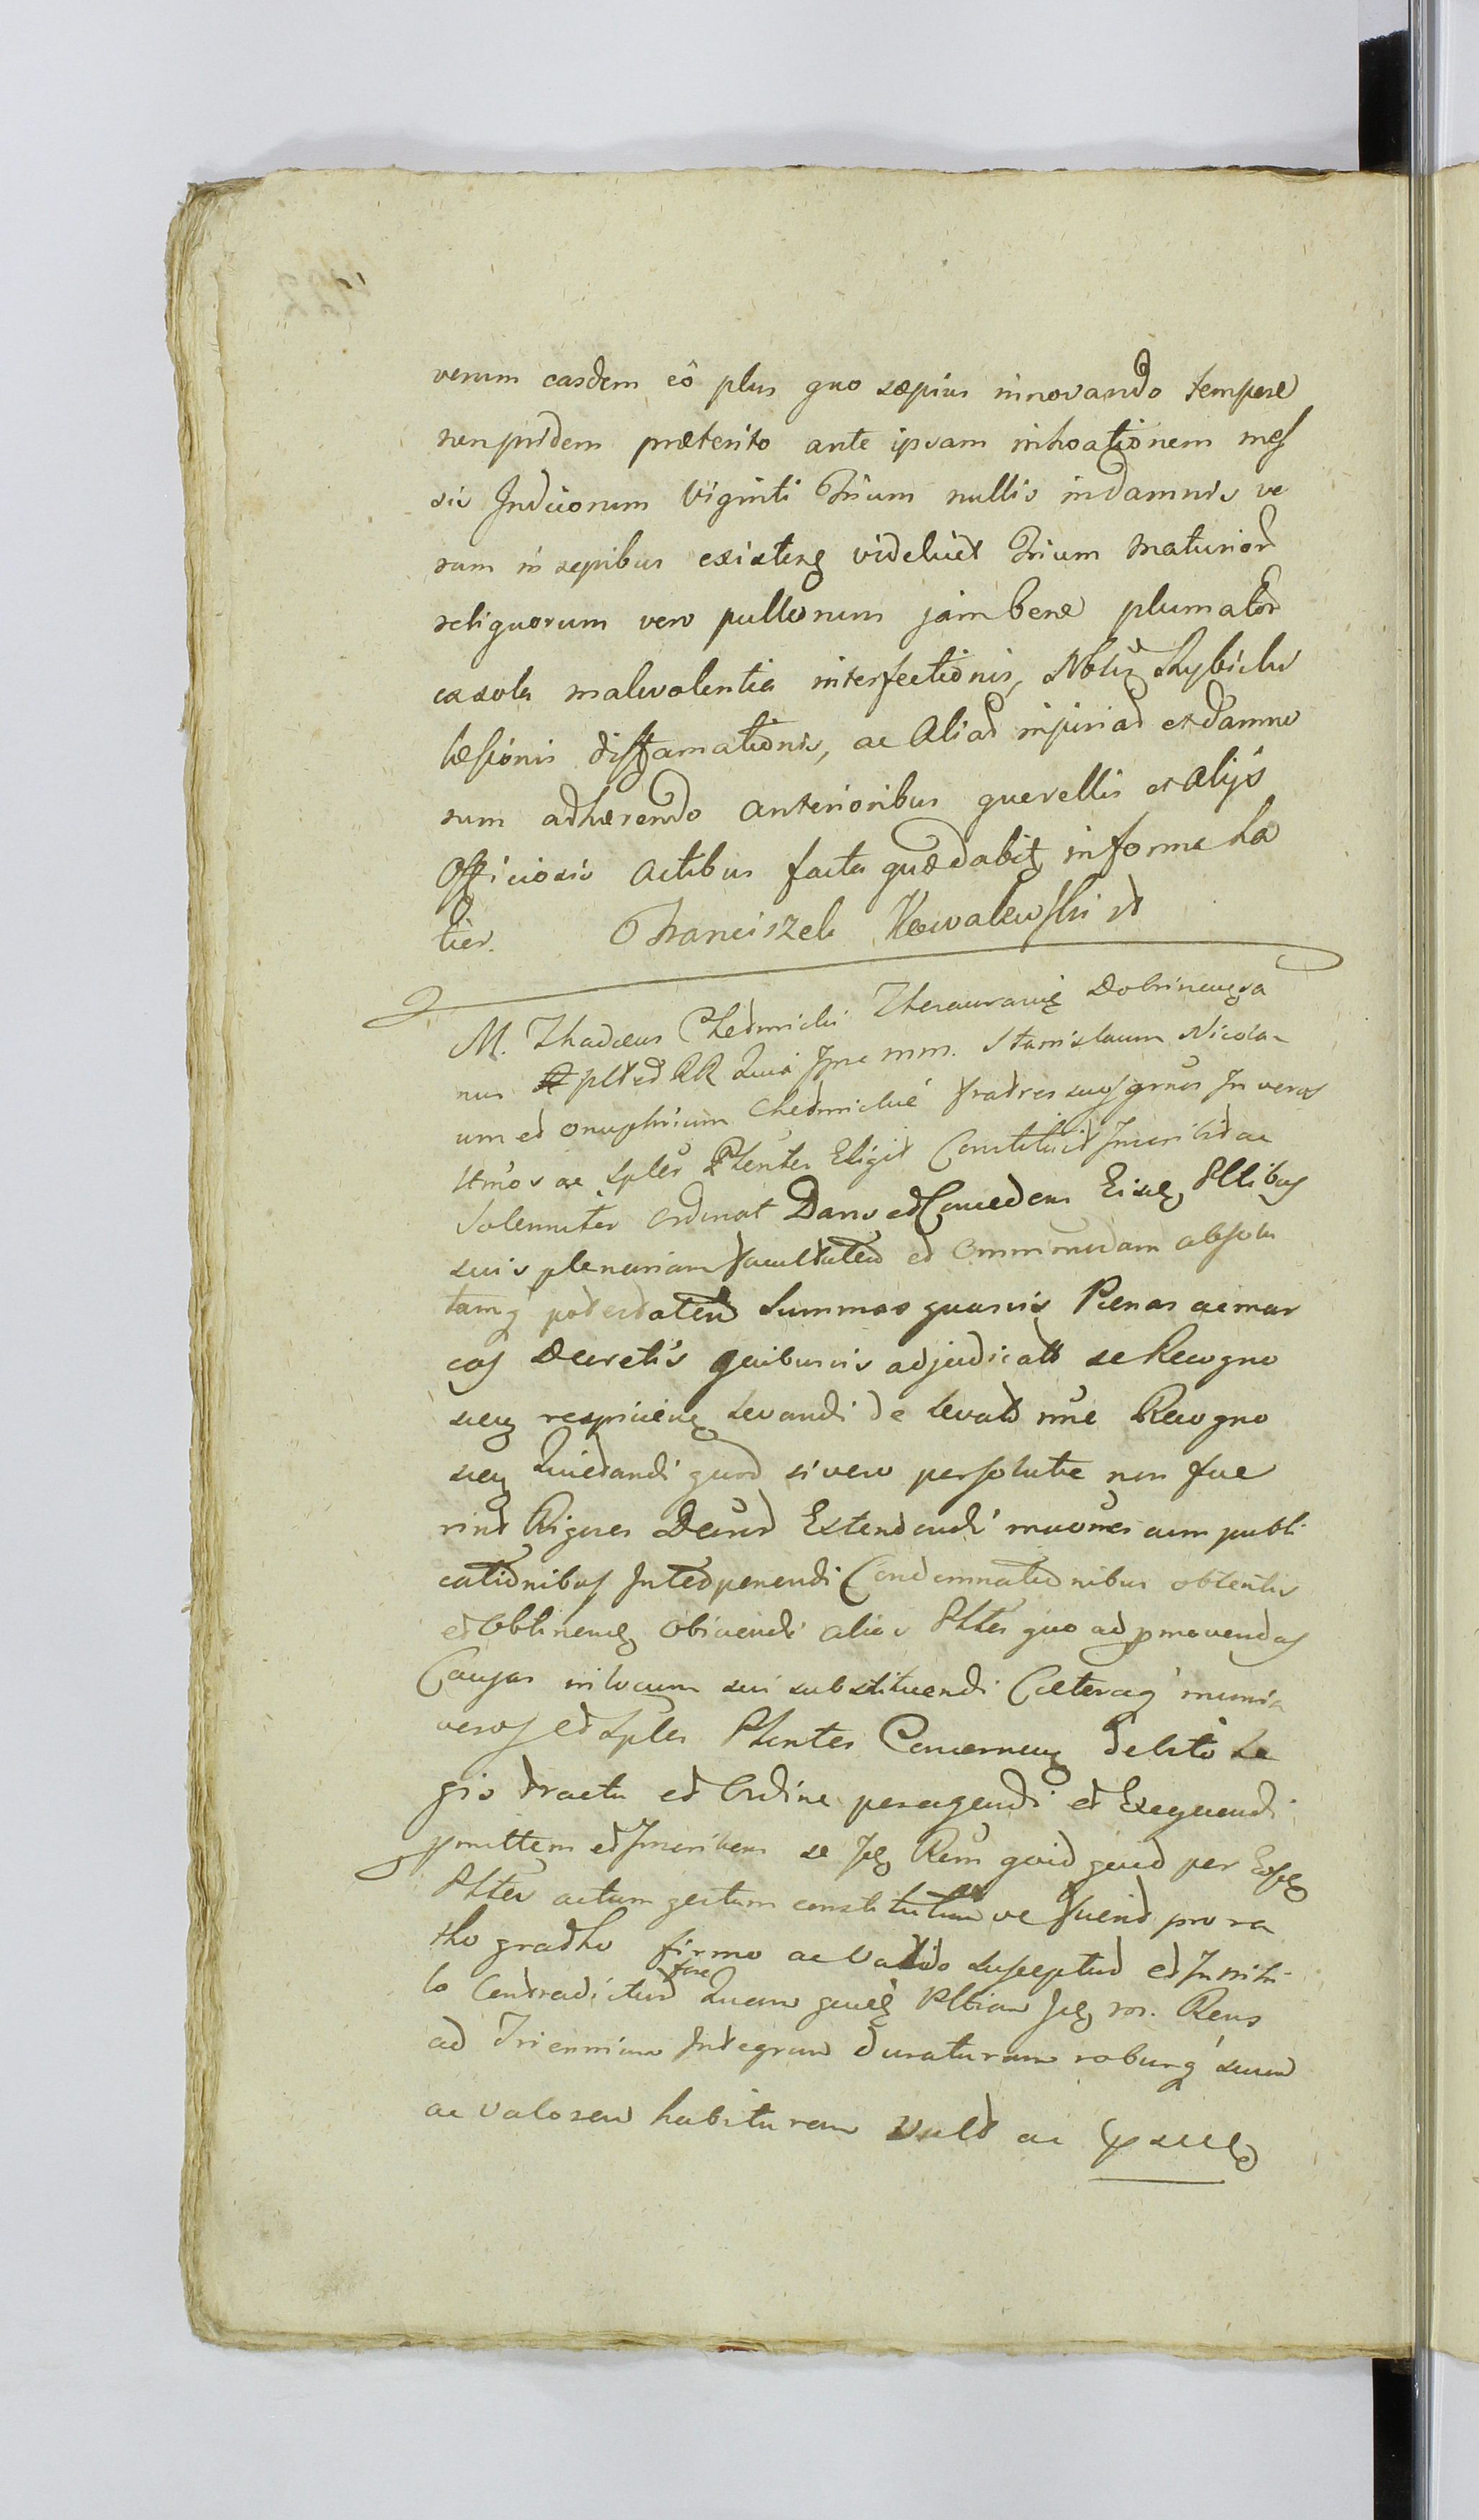 verum easdem eô plus quo sæpius innovando tempore
nonpridem præterito ante ipsam inhoationem mes
sis Indicorum Viginti Trium nullis indamnis ve
rum in sepibus existeng videlicet Trium maturior
reliquorum vero pullorum jam bene plumator
ex sola malevolentia interfectionis, Nobiliu Rybicki
læsionis diffamationis, ac Aliar injuriar et damno
rum adhærendo anterioribus querellis et alijs
Officiosis actibus facta quæ dabit in forma La
tior. Franciszek Kowalewski
M. Thadæus Chełmicki Thesaurarius Dobrinen
nus RR Quia Ipse mm. Stanislaum Nicola
um et Onuphrium Chełmickie fratres suos In veros
ltmos ac sples Plentes Eligit Constituit Inscribit ac
Solenniter Ordinat Dans et Concedens Eisd Pltibus
suis plenariam facultatem et Omnimodam absolu
tamq potestatem Summas quasvis Pœnas ac mar
cas Decretis quibusvis adjudicatt se Recogno
scen respicien levandi de levatis Recogno
scen Quietandi quod si vero persolutæ non fue
rint Rigores Decret Extendendi cum publi
cationibus Interponendi Condemnationibus obtentis
et Obtinend Obicendi alios Pltes quo ad pmovendas
Causas in locum sui substituendi Cæteraq munia
veros et sples Plentes Concernen debito Le
gis tractu et Ordine peragendi et Exequendi
pmittem et Inscribens se Rem quid quid per Eosd
Pltes actum gestum constitutumve fuerit pro ra
tho gratho firmo ac Valido susceptur et In nihi
lo Contradictur fore Quam quid Pltiam Rens
ad Triennium Integrum duraturam roburq suum
ac valorem habituram vult ac